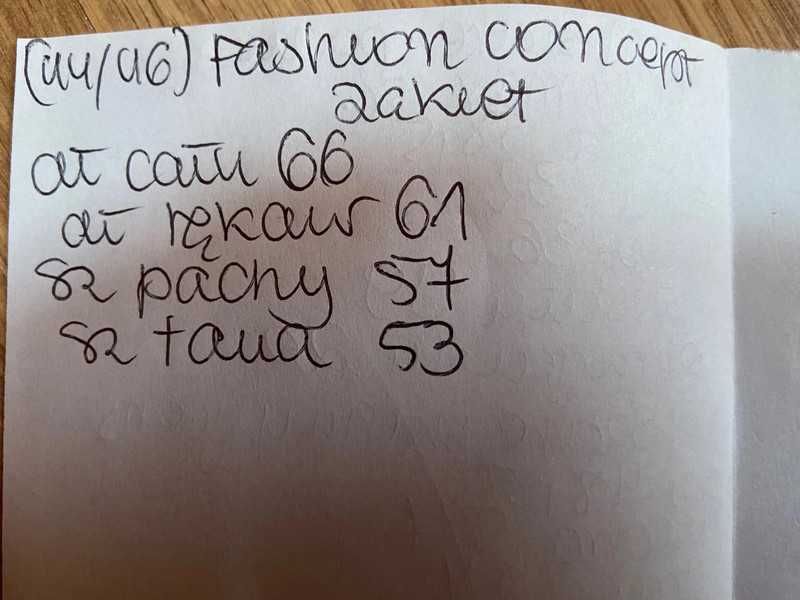 (44/46) Fashion concept
żakiet
dł całk 66
dł rękaw 61
sz pachy 57
sz talia 53